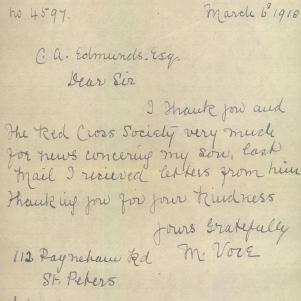 no 4597.
March 6th 1918
C. A. Edmunds. Esq.
Dear Sir
I Thank you and
the Red Cross Society very much
for news concering my son, last
mail I recieved letters from him
thanking you for your Kindness
yours Gratefully
M. Voce
112 Payneham Rd
St. Peters